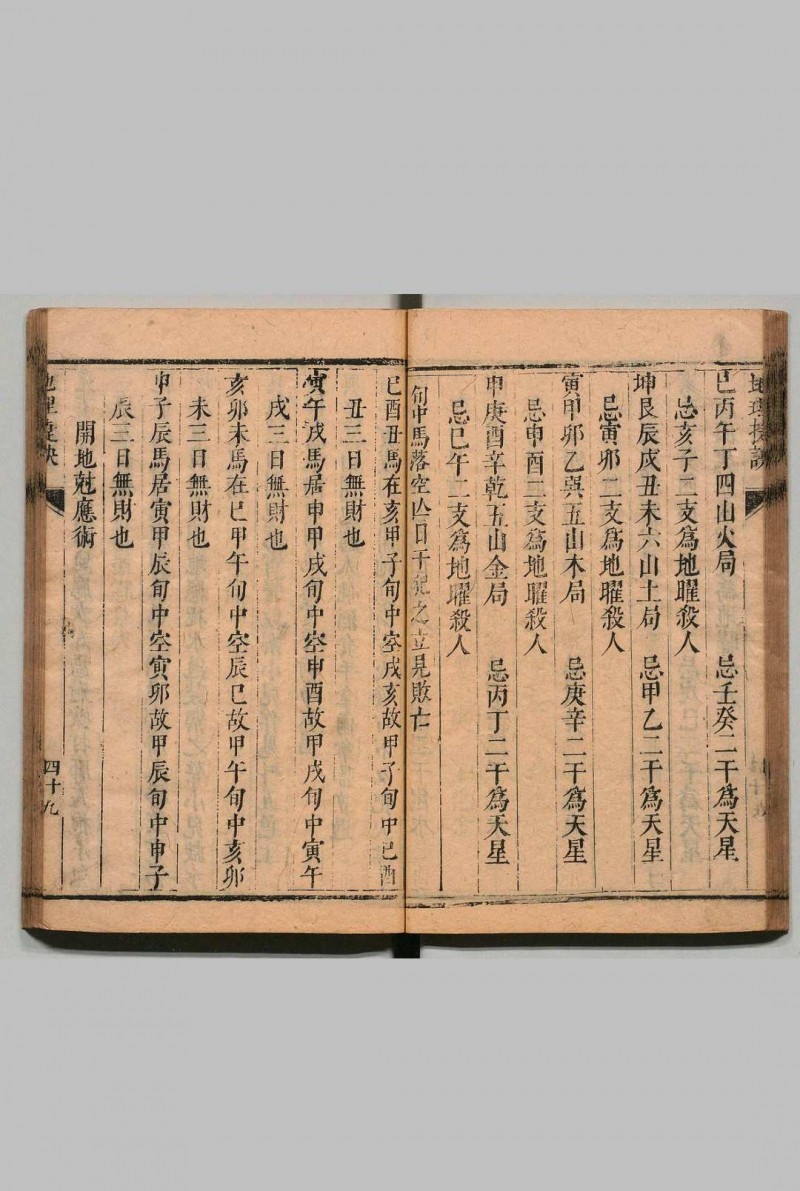 巳丙午丁四山火局　忌壬癸二干為天星
忌亥子二支爲地曜殺人
坤艮辰戌丑未六山土局　忌甲乙二干為天星
忌寅卯二支爲地曜殺人
寅甲卯乙巽五山木局　忌庚辛二干為天星
忌申酉二支爲地曜殺人
申庚酉辛乾五山金局　忌丙丁二干為天星
忌巳午二支爲地曜殺人
旬中馬落空亡日干犯之立見敗亡
巳酉丑馬在亥甲子旬中空戌亥故甲子旬中巳酉
丑三日無財也
寅午戌馬居申甲戌旬中空申酉故甲戌旬中寅午
戌三日無財也
亥卯未馬在巳甲午旬中空辰巳故甲午旬中亥卯
未三日無財也
申子辰馬居寅甲辰旬中空寅卯故甲辰旬中申子
辰三日無財也
開地尅應術
地理
四十九